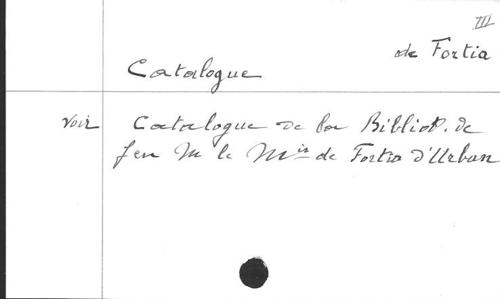 III
de Fortia
Catalogue
voir Catalogue de la Bibliot. de
feu M le Mis de Fortia d'Urban